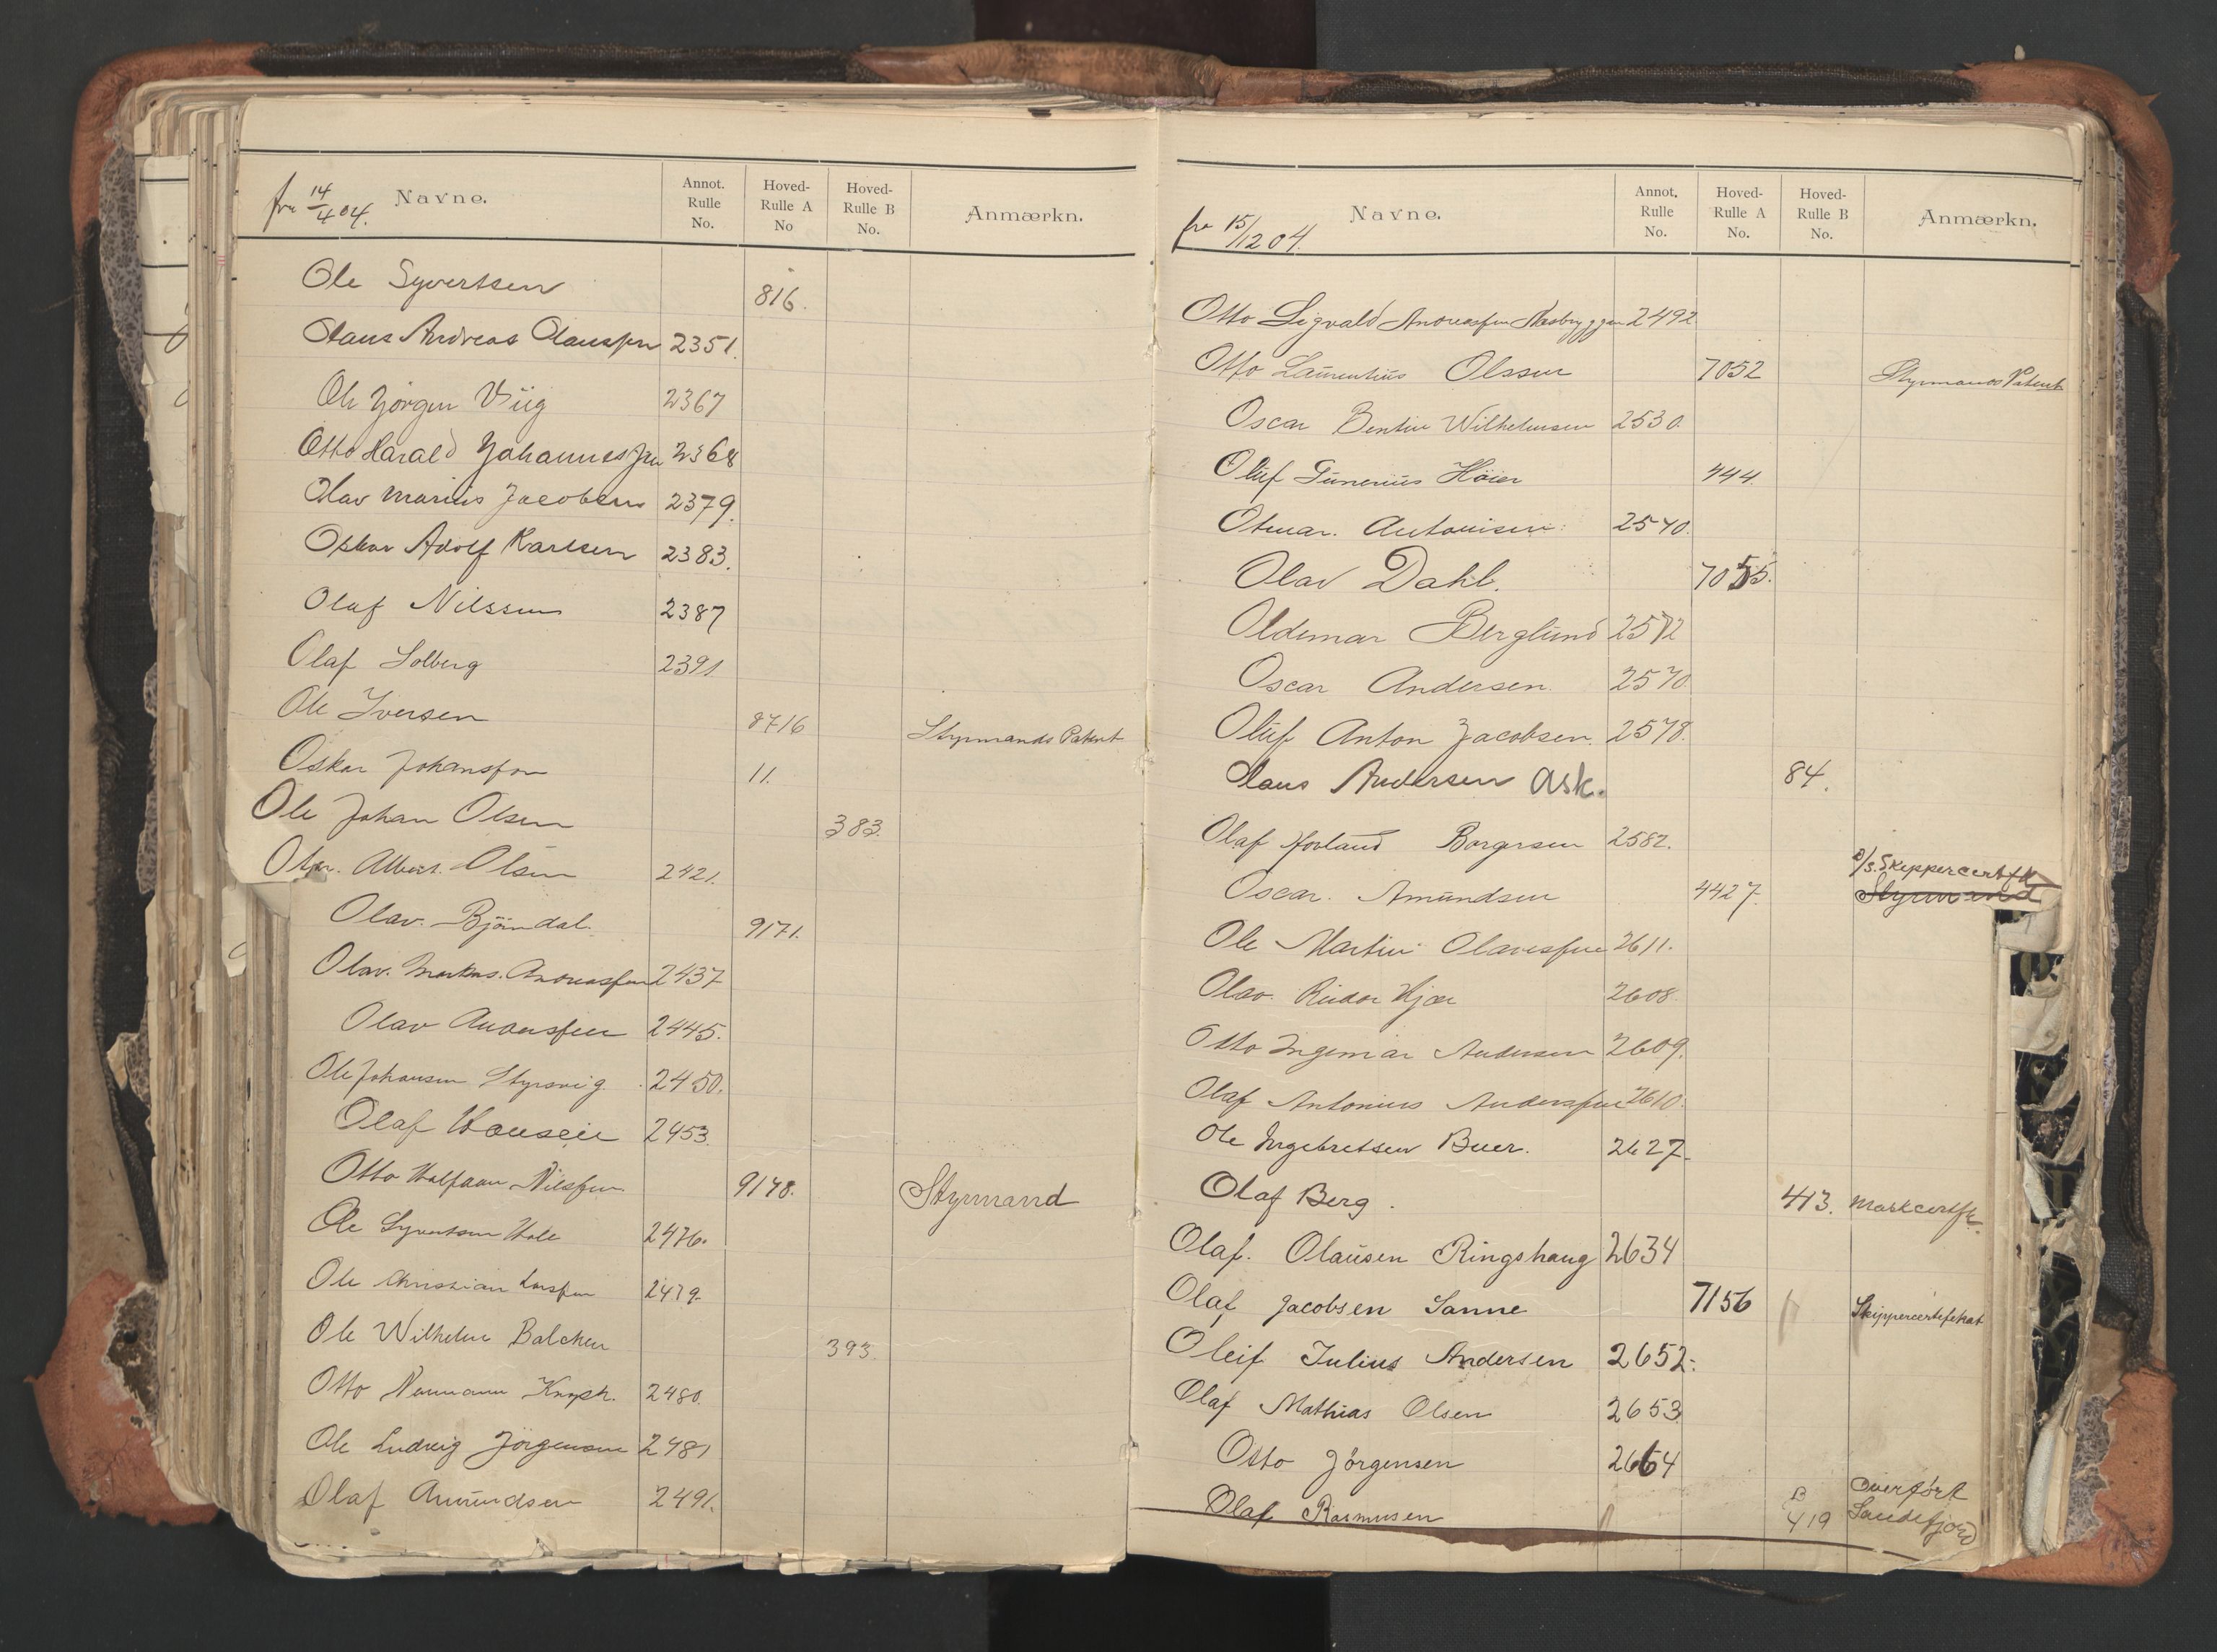 fra 14/4 04. Navne. Annot. Rulle No. Hoved-Rulle A No Hoved-Rulle B No. Anmærkn.
Ole Syvertsen 816.
Olaus Andreas Olaussen 2351.
Ole Jörgen Viig 2367
Otto Harald Johannessen 2368
Olav Marius Jacobsen 2379.
Oskar Adolf Karlsen 2383.
Olaf Nilssen 2387
Olaf Solberg 2391
Ole Iversen 8716 Styrmands Patent
Oskar Johanssen 11.
Ole Johan Olsen 383.
Albert. Olsen 2421.
Olav. Bjöndal. 9171.
Olav. Markus. Andreassen 2437
Olav Andersen 2445.
Ole Johansen Styrsvig. 2450.
Olaf Hansen 2453.
Otto Nilssen 9178. Styrmand
Ole Syvertsen 2476.
Ole Christian Larssen 2479.
Ole Wilhelm Balchen 393.
Otto Normann Knoph. 2480.
Ole Ludvig Jörgensen 2481
Olaf Amundsen 2491.
fra 15/12 04. Navne. Annot. Rulle No. Hoved-Rulle A No. Hoved-Rulle B No. Anmærkn.
Otto Sigvald Andreassen Næsbryggen 2492
Otto Laurentius Olssen 7052 Styrmands Patent
Oscar Bentin Wilhelmsen 2530.
Oluf Gunerius Höier 444.
Otmar. Antonisen. 2540.
Olav Dahl. 7055.
Oldemar Berglund 2572
Oscar Andersen 2570
Oluf Anton Jacobsen. 2578.
Olaus Andersen Ask. 84.
Olaf Hovland Borgersen 2582.
Oscar. Amundsen 4427. D/S. Skippercertfk Styrmand
Ole Martin Olavessen 2611.
Olav Kjær 2608.
Otto Ingemar Andersen 2609.
Olaf Antonius Anderssen 2610.
Ole Ingebretsen Buer. 2627.
Olaf Berg. 413. Maskcertfk.
Olaf. Olausen Ringshaug 2634
Olaf Jacobsen Sanne 7156 Skippercertefekat
Oleif Julius Andersen 2652.
Olaf Mathias Olsen 2653
Otto Jörgensen 2664
Olaf Rasmusen B 419 Overfört Sandefjord